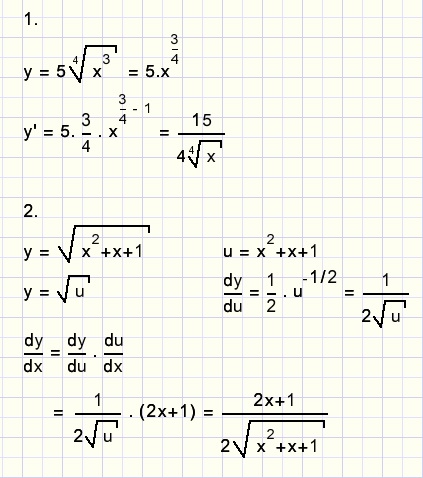 1.
y = 5∜(x³) = 5.x^(3/4)
y' = 5. 3/4 . x^(3/4 - 1) = 15/(4∜x)
2.
y = √(x²+x+1)    u = x²+x+1
y = √u    dy/du = 1/2 . u^(-1/2) = 1/(2√u)
dy/dx = dy/du . du/dx
= 1/(2√u) . (2x+1) = (2x+1)/(2√(x²+x+1))